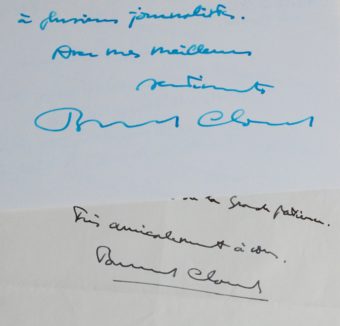 à plusieurs journalistes.
Avec mes meilleurs
sentiments
Bernard Clavel
grande patience.
Très amicalement à vous.
Bernard Clavel